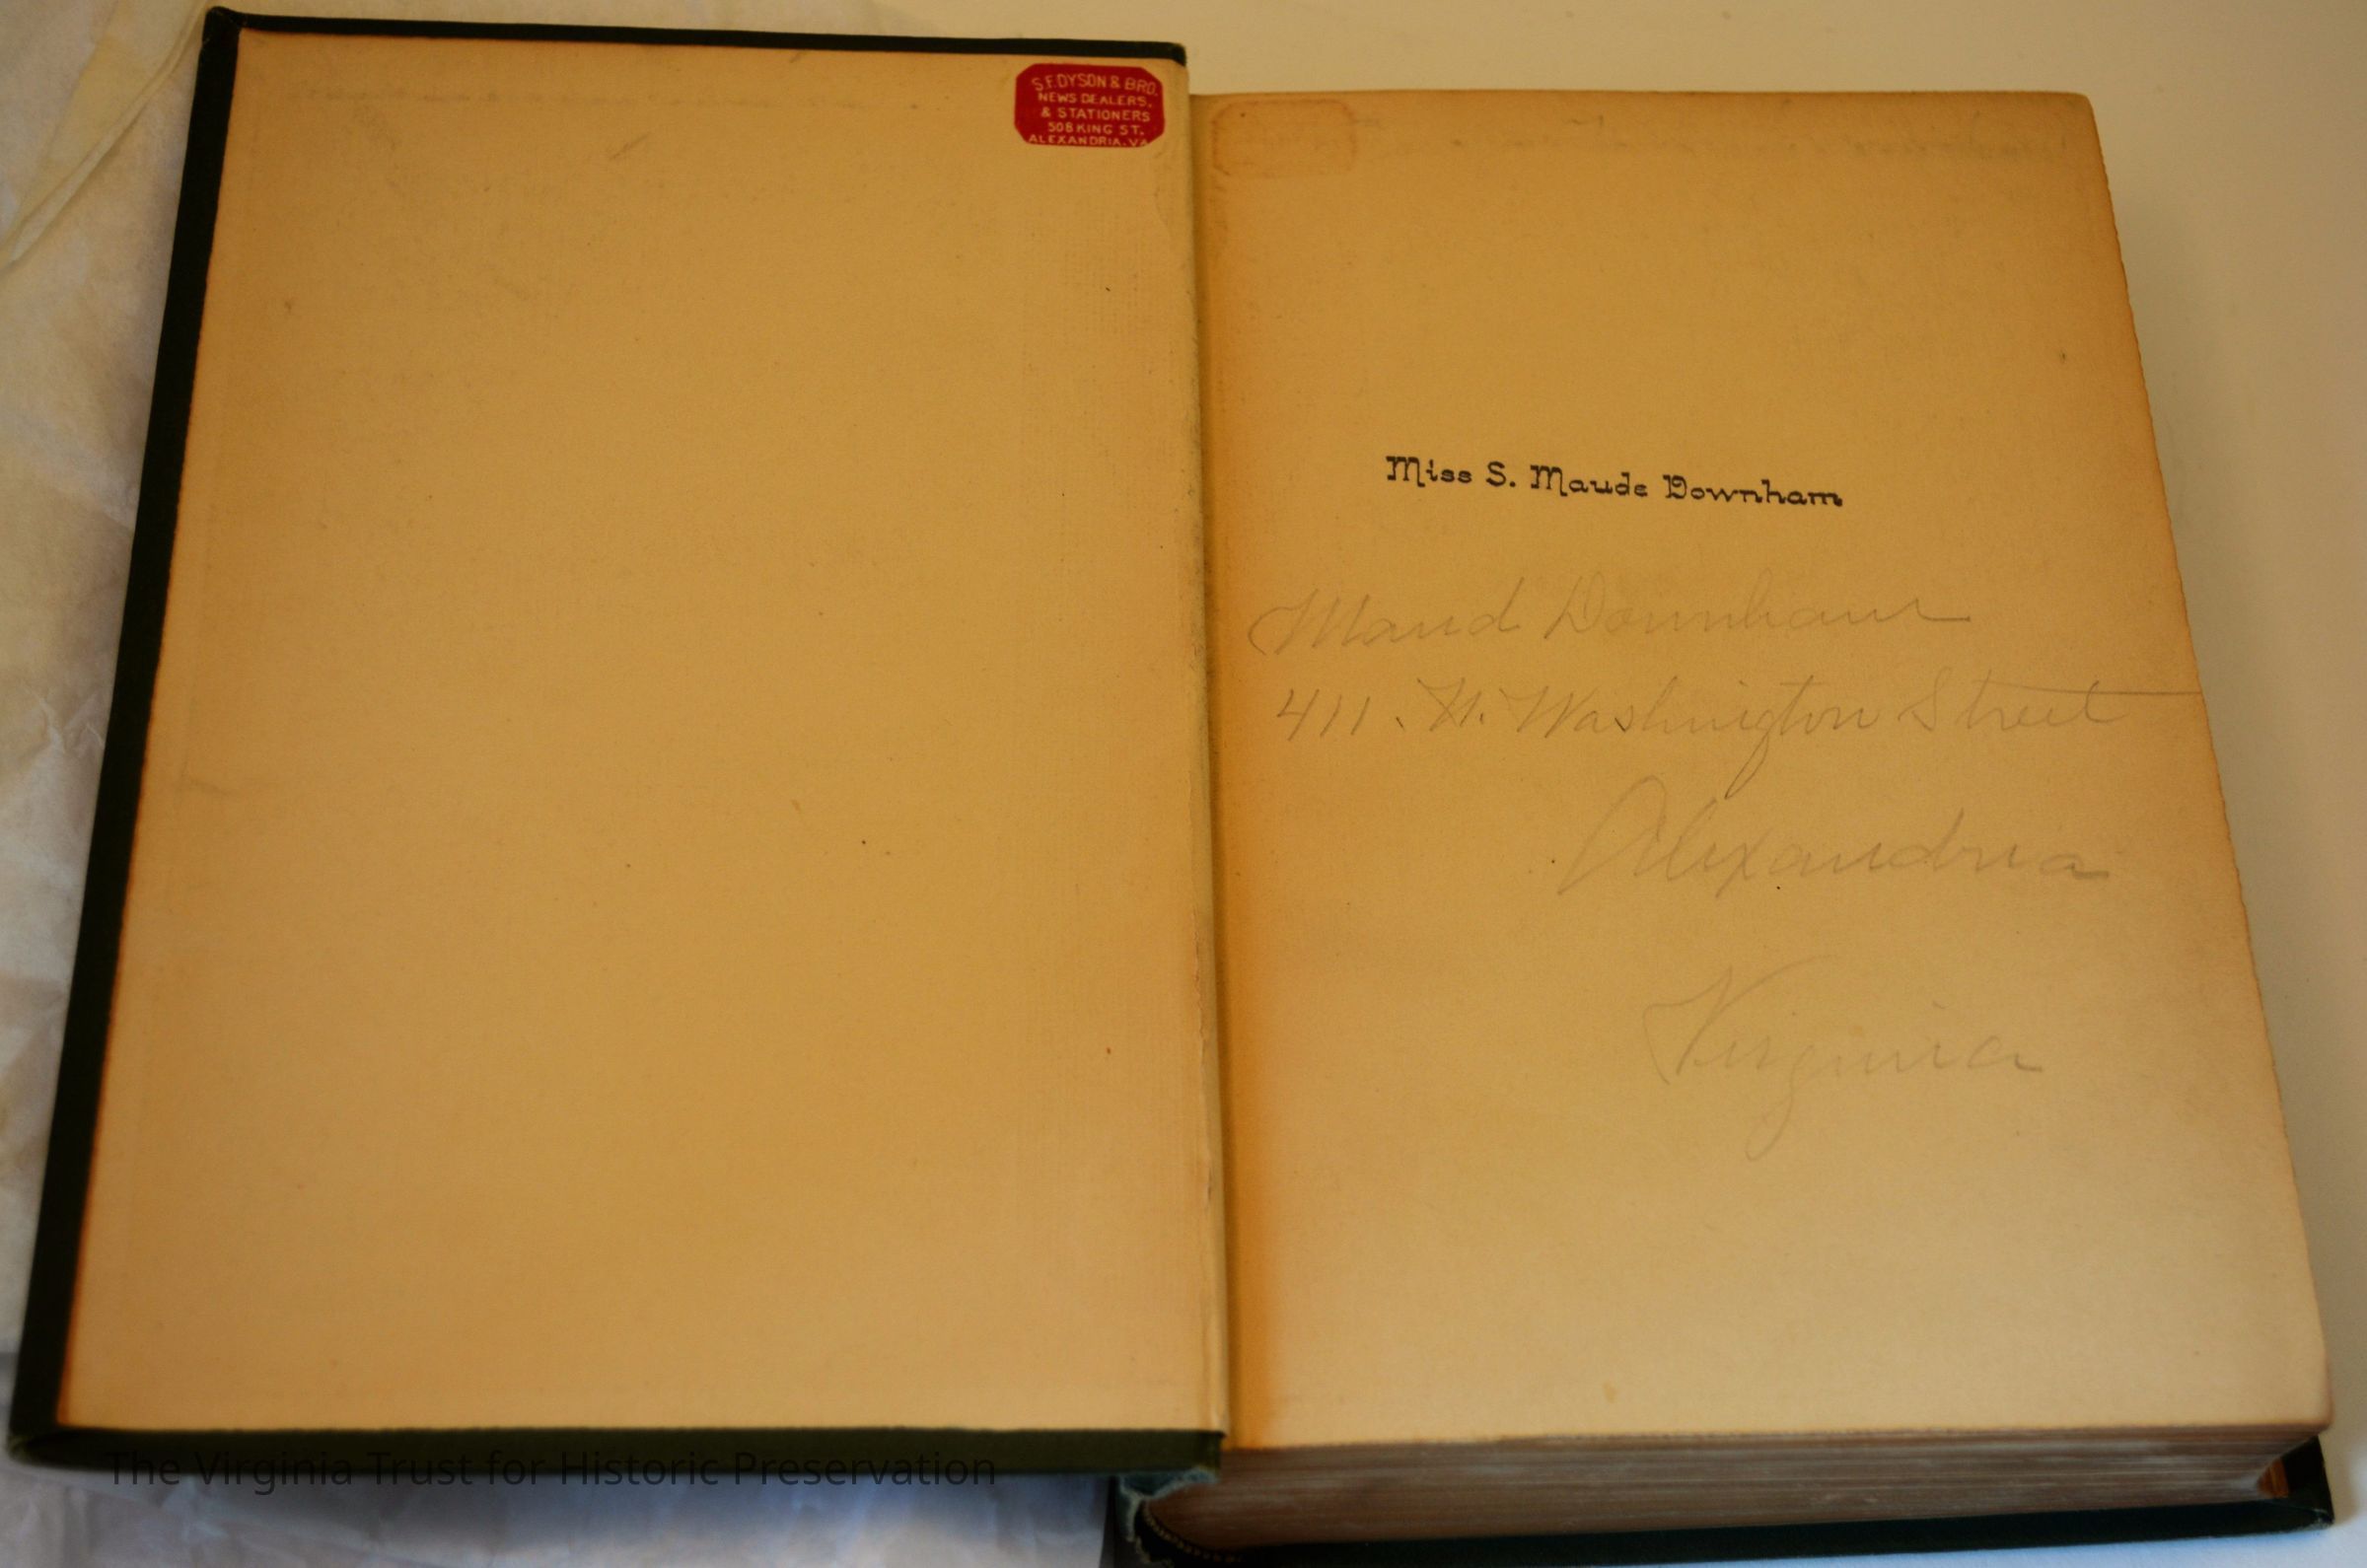 S.F. DYSON & BRO.
NEWS DEALERS,
& STATIONERS
508 KING ST.
ALEXANDRIA. VA
Miss S. Maude Downham
Maud Downham
411. N. Washington Street
Alexandria
Virginia
The Virginia Trust for Historic Preservation